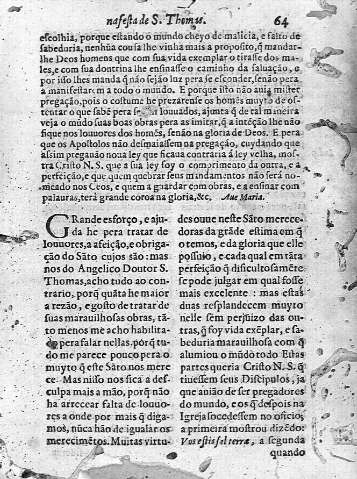 na festa de S. Thomas. 64
escolhia, porque estando o mundo cheyo de malicia, e falto de
sabeduria, nenhũa cousa lhe vinha mais a proposito, q̃ mandar-
lhe Deos homens que com sua vida exemplar o tirasse dos ma-
les, e com sua doutrina lhe ensinasse o caminho da saluação, e
por isso lhes manda q̃ não sejão luz pera se esconder, senão pera
a manifestarẽ a todo o mundo. E porque isto não auia mister
pregação, pois o costume he prezarense os homẽs muyto de os-
tentar o que sabẽ pera serẽ louuados, ajunta q̃ de tal maneira
veja o mũdo suas boas obras pera as imitar, q̃ a intẽção lhe não
fique nos louuores dos homẽs, senão na gloria de Deos. E pera
que os Apostolos não desmaiassem na pregação, cuydando que
assim pregauão noua ley que ficaua contraria á ley velha, mos-
tra Cristo N. S. que a sua ley foy o comprimento da outra, e a
perfeição, e que quem quebrar seus mandamentos não será no-
meado nos Ceos, e quem a guardar com obras, e a ensinar com
palauras, terá grande coroa na gloria, &c. Aue Maria.
GRande esforço, e aju-
da he pera tratar de
louuores, a afeição, e obriga-
ção do Sãto cujos são: mas
nos do Angelico Doutor S.
Thomas, acho tudo ao con-
trário, porq̃ quãta he maior
a rezão, e gosto de tratar de
suas marauilhosas obras, tã-
to menos me acho habilita-
do pera falar nellas, porq̃ tu-
do me parece pouco pera o
muyto q̃ este Sãto nos mere-
ce. Mas nisso nos fica a des-
culpa mais a mão, porq̃ não
ha arrecear falta de louuo-
res a onde por mais q̃ diga-
mos, nũca hão de igualar os
merecimẽtos. Muitas virtu-
des ouue neste Sãto merece-
doras da grãde estima em q̃
o temos, e da gloria que elle
possuio, e cada qual em tãta
perfeição q̃ dificultosamẽte
se pode julgar em qual fosse
mais excelente: mas estas
duas resplandecem muyto
nelle sem perjuizo das ou-
tras, q̃ foy vida exẽplar, e sa-
beduria marauilhosa com q̃
alumiou o mũdo todo Estas
partes queria Cristo N. S. q̃
tiuessem seus Discipulos, ja
que auião de ser pregadores
do mundo, e os q̃ despois na
Igreja socedessem no oficio,
a primeira mostrou dizẽdo:
Vos estis sal terræ, a segunda
quando